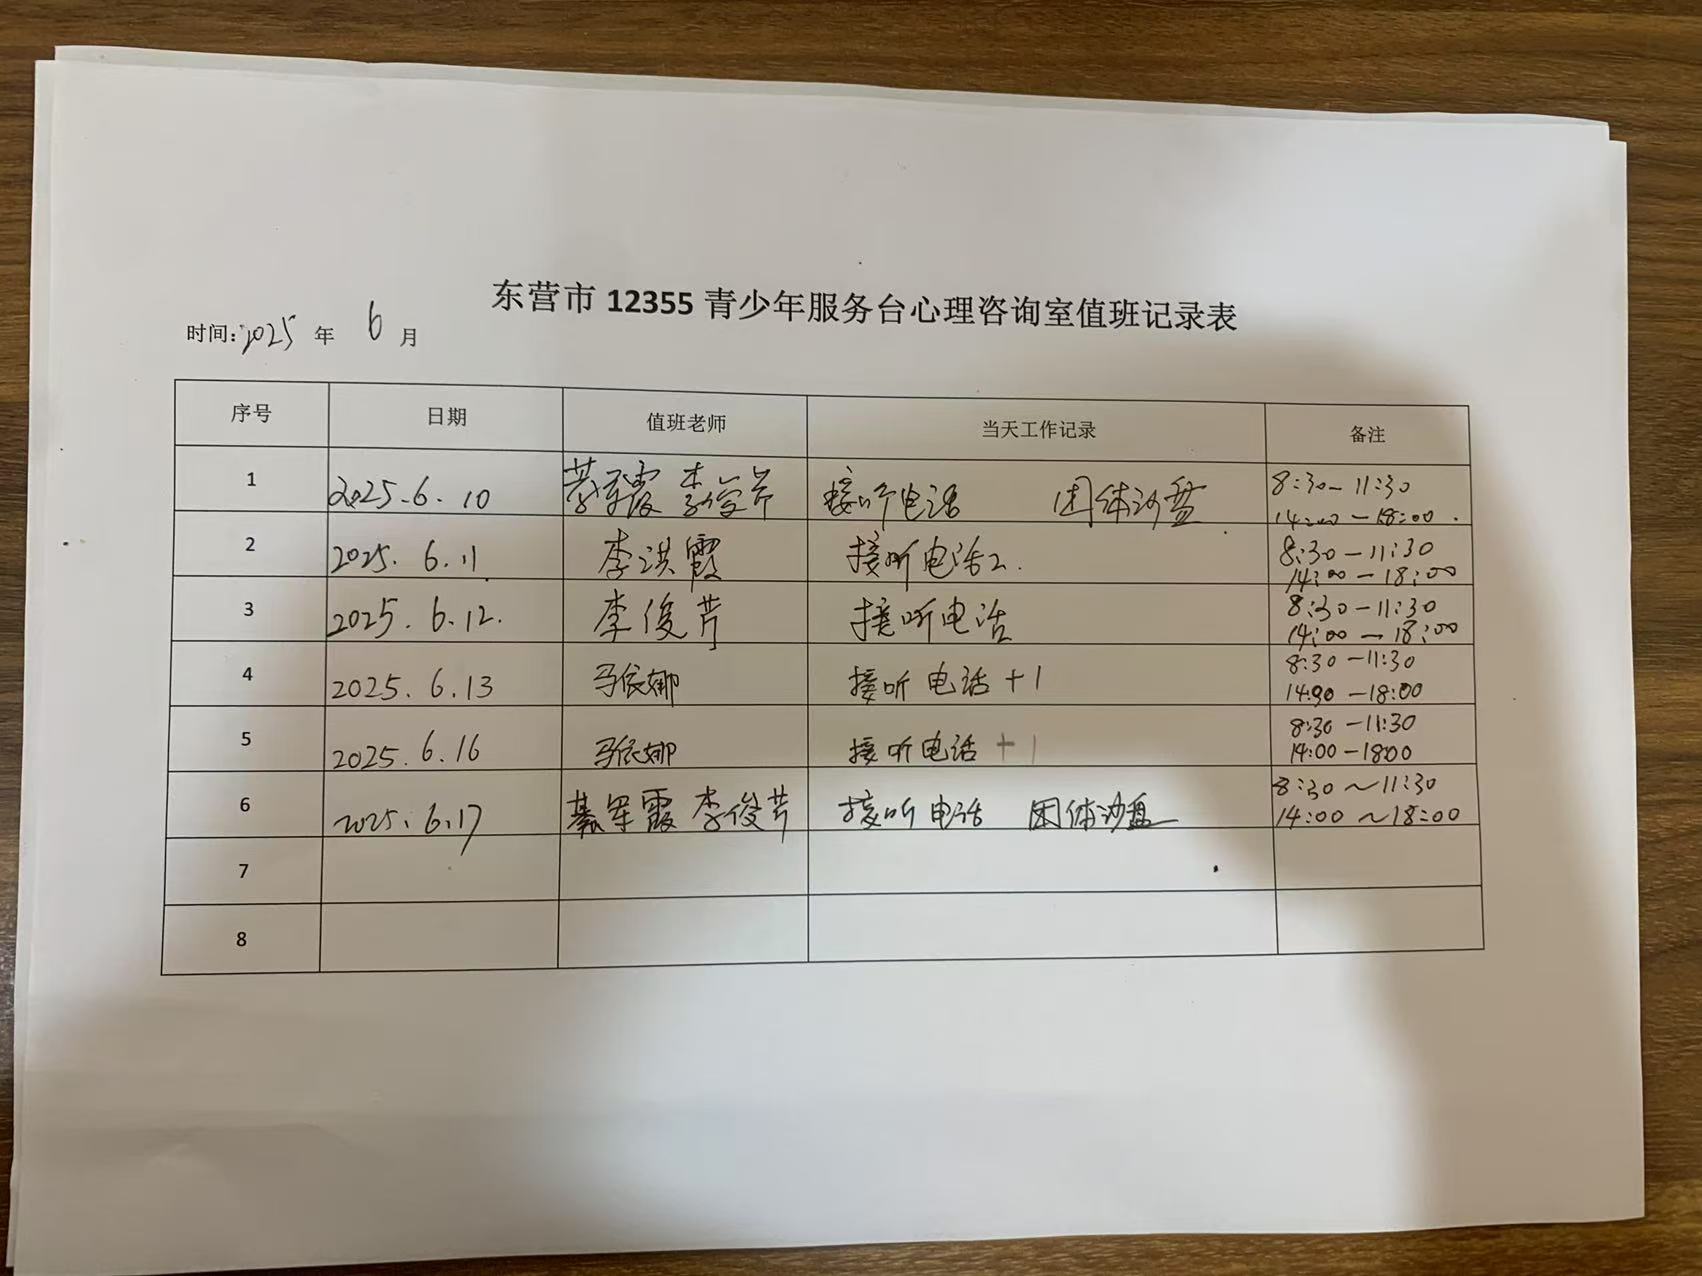 东营市 12355 青少年服务台心理咨询室值班记录表
时间:2025 年 6 月
序号 日期 值班老师 当天工作记录 备注
1 2025.6.10 李俊芹 接听电话 团体沙盘 8:30-11:30
14:00-18:00.
2 2025.6.11 李洪霞 接听电话2. 8:30-11:30
14:00-18:00
3 2025.6.12. 李俊芹 接听电话 8:30-11:30
14:00-18:00
4 2025.6.13 马依娜 接听电话+1 8:30-11:30
14:00-18:00
5 2025.6.16 马依娜 接听电话+1 8:30-11:30
14:00-18:00
6 2025.6.17 綦军霞 李俊芹 接听电话 团体沙盘 8:30~11:30
14:00~18:00
7
8